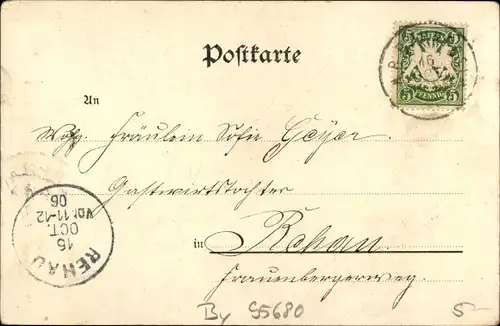 Postkarte
5 5
5 PFENNIG 5
An
Wohl. Fräulein Sofie Geyer
Gastwirtstochter
in Rehau.
Frauenbergerweg.
REHAU
15
OCT.
Vor. 11-12
06
By 95680
5-